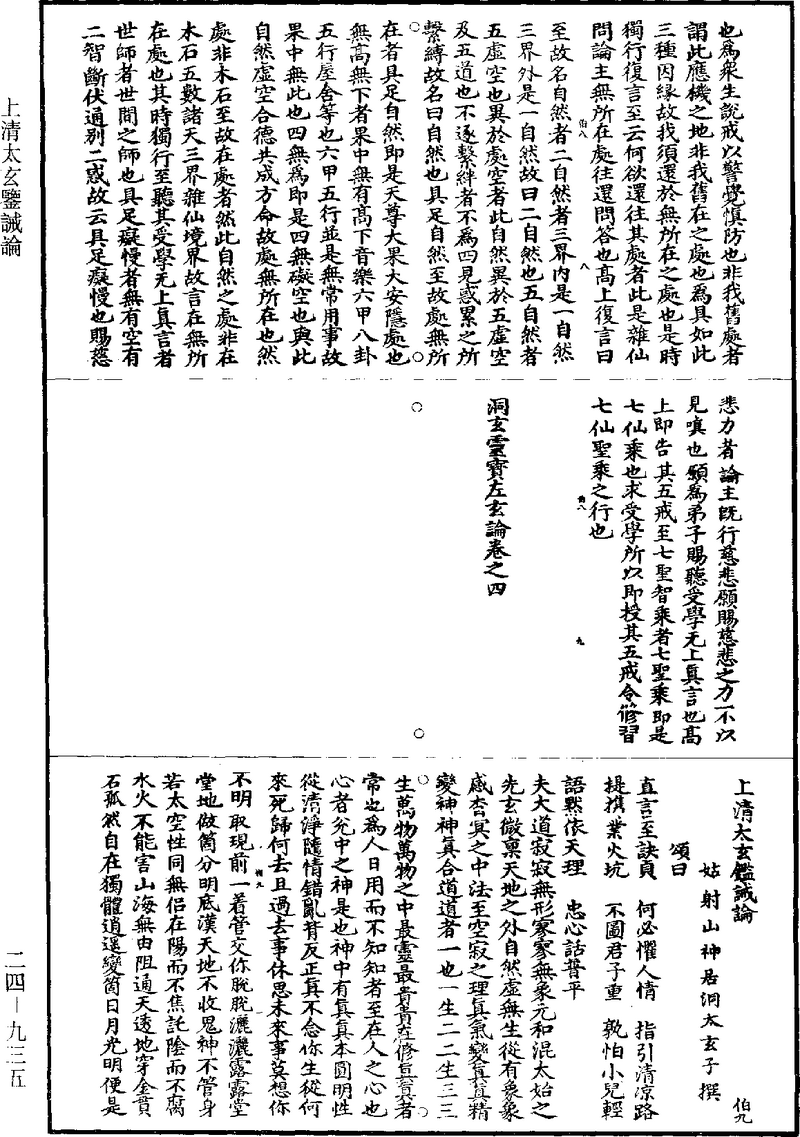 也為衆生說戒以警覺慎防也非我舊處者
謂此應機之地非我舊在之處也為具如此
三種因緣故我須還於無所在之處也是時
獨行復言至云何欲還往其處者此是雜仙
問論主無所在處往還問答也高上復言曰
至故名自然者二自然者三界內是一自然
三界外是一自然故曰二自然也五自然者
五虛空也異於處空者此自然異於五虛空
及五道也不逐繫絆者不為四見惑累之所
繫縛故名曰自然也具足自然至故處無所
在者具足自然即是天尊大果大安隱處也
無高無下者果中無有高下音樂六甲八卦
五行屋舍等也六甲五行並是無常用事故
果中無此也四無為即是四無礙空也與此
自然虛空合德共成方命故處無所在也然
處非木石至故在處者然此自然之處非在
木石五數諸天三界雜仙境界故言在無所
在處也其時獨行至聽其受學无上真言者
世師者世間之師也具足癡慢者無有空有
二智斷伏通别二惑故云具足癡慢也賜慈
伯八
八
悲力者論主既行慈悲願賜慈悲之力一不以
見嗔也願為弟子賜聽受學无上真言也高
上即告其五戒至七聖智乘者七聖乘即是
七仙乘也求受學所以即授其五戒令修習
七仙聖乘之行也
伯八
九
洞玄靈寶左玄論卷之四
上清太玄鑑誡論
伯九
姑射山神居洞太玄子撰
頌曰
直言至訣貞　何必懼人情　指引清凉路
提携業火坑　不圖君子重　孰怕小兒輕
語黙依天理　忠心話普平
夫大道寂寂無形寥寥無象元和混太始之
先玄微禀天地之外自然虛無生從有象象
感杳冥之中法至空寂之理真氣變真真精
變神神真合道道者一也一生二二生三三
生萬物萬物之中最靈最貴貴在修真真者
常也為人日用而不知知者至在人之心也
心者允中之神是也神中有真真本圓明性
從清淨隨情錯亂背反正真不念你生從何
來死歸何去且過去事休思未來事莫想你
不明取現前一着管交你脫脫灑灑露露堂
堂地做箇分明底漢天地不收鬼神不管身
若太空性同無侣在陽而不焦託陰而不腐
水火不能害山海無由阻通天透地穿金貫
石孤然自在獨體逍遥變箇日月光明便是
伯九
上清太玄鑒誡論
二四－九三五